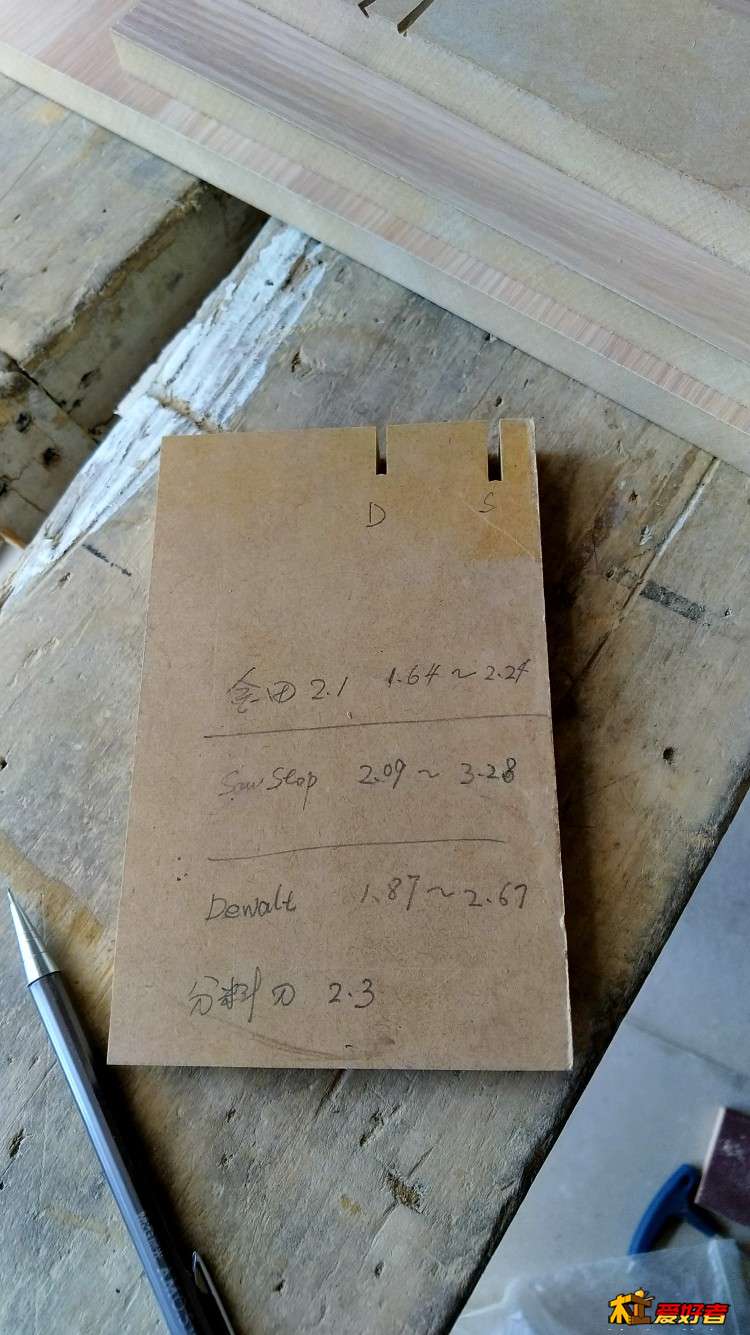 D S
金田 2.1 1.64～2.24
Sawstop 2.09～3.28
Dewalt 1.87～2.67
分料刀 2.3
木工爱好者